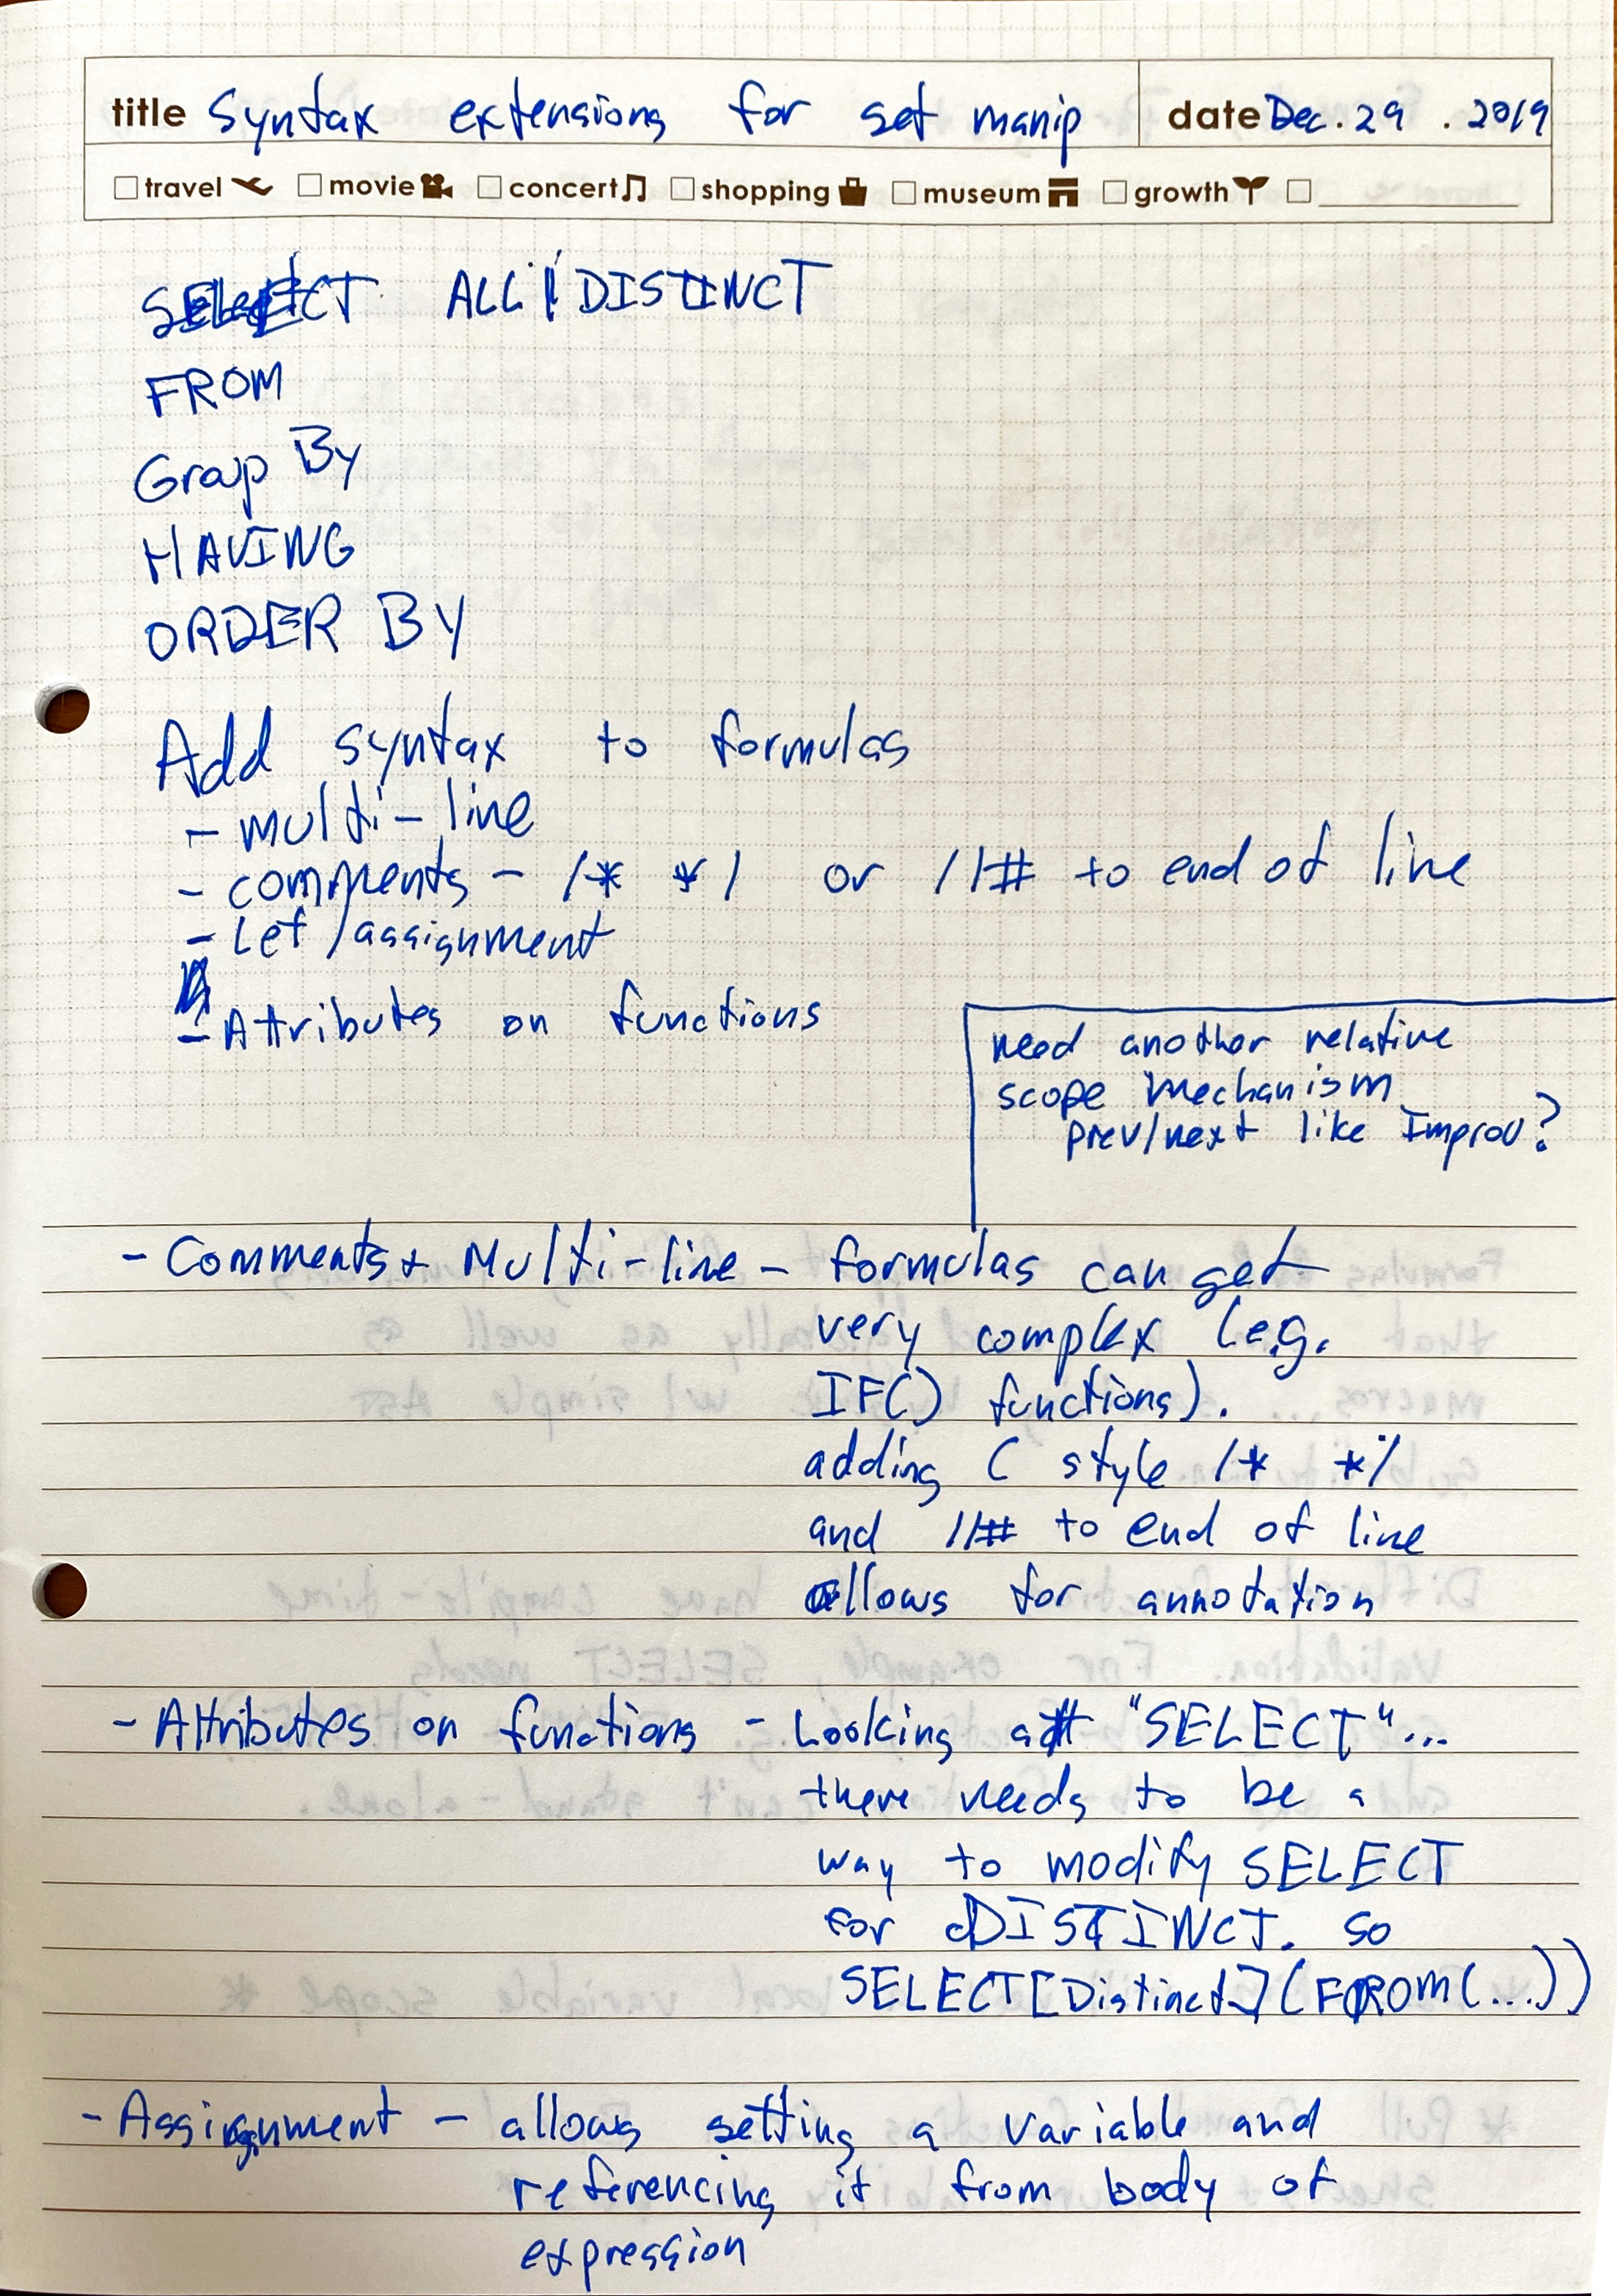 title Syntax extensions for set manip date Dec. 29 . 2019
travel movie concert shopping museum growth
SELECT ALL | DISTINCT
FROM
Group By
HAVING
ORDER BY
Add syntax to formulas
- multi-line
- comments - /* */ or //# to end of line
- Let /assignment
- Attributes on functions
need another relative
scope mechanism
prev/next like Improv?
- Comments + Multi-line - formulas can get
very complex (e.g.
IF() functions).
adding C style /* */
and //# to end of line
allows for annotation
- Attributes on functions - Looking at "SELECT"...
there needs to be a
way to modify SELECT
for DISTINCT. so
SELECT[Distinct](FROM(...))
- Assignment - allows setting a variable and
referencing it from body of
expression